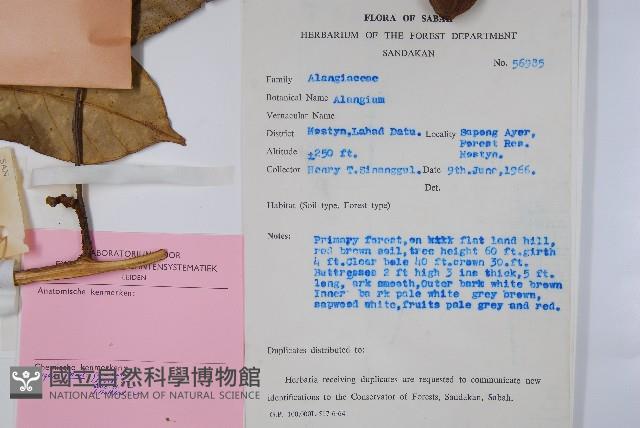 FLORA OF SABAH
HERBARIUM OF THE FOREST DEPARTMENT
SANDAKAN
No. 56985
Family Alangiaceae
Botanical Name Alangium
Vernacular Name
District Mostyn,Lahad Datu. Locality Sapong Ayer,
Forest Res.
Altitude ±250 ft. Mostyn.
Collector Henry T.Sinanggul. Date 9th.June,1966.
Det.
Habitat (Soil type, Forest type)
Notes:
Primary forest,on flat land hill,
red brown soil,tree height 60 ft.girth
4 ft.Clear bole 40 ft.crown 30.ft.
Buttresses 2 ft high 3 ins thick,5 ft.
long, ark smooth,Outer bark white brown
Inner ba rk pale white grey brown,
sapwood white,fruits pale grey and red.
Duplicates distributed to:
Herbaria receiving duplicates are requested to communicate new
identifications to the Conservator of Forests, Sandakan, Sabah.
LABORATORIUM VOOR
LEIDEN
Anatomische kenmerken:
Chemische kenmerken:
國立自然科學博物館
NATIONAL MUSEUM OF NATURAL SCIENCE